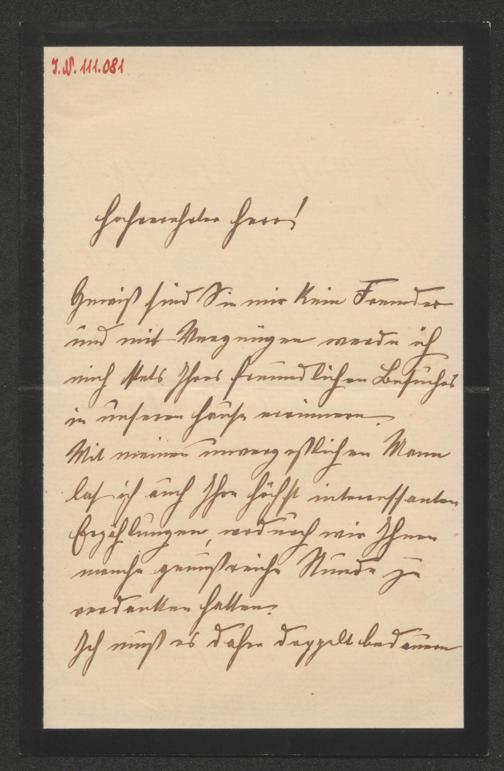 J.N. 111.081
Hochverehrter Herr!
Gewiß sind Sie mir kein Fremder
und mit Vergnügen werde ich
mich stets Ihres freundlichen Besuches
in unserem Hause erinnern.
Mit meinem unvergeßlichen Mann
las ich auch Ihre höchst interessanten
Erzählungen, wodurch wir Ihnen
manche genußreiche Stunde zu
verdanken hatten.
Ich muß es daher doppelt bedauern